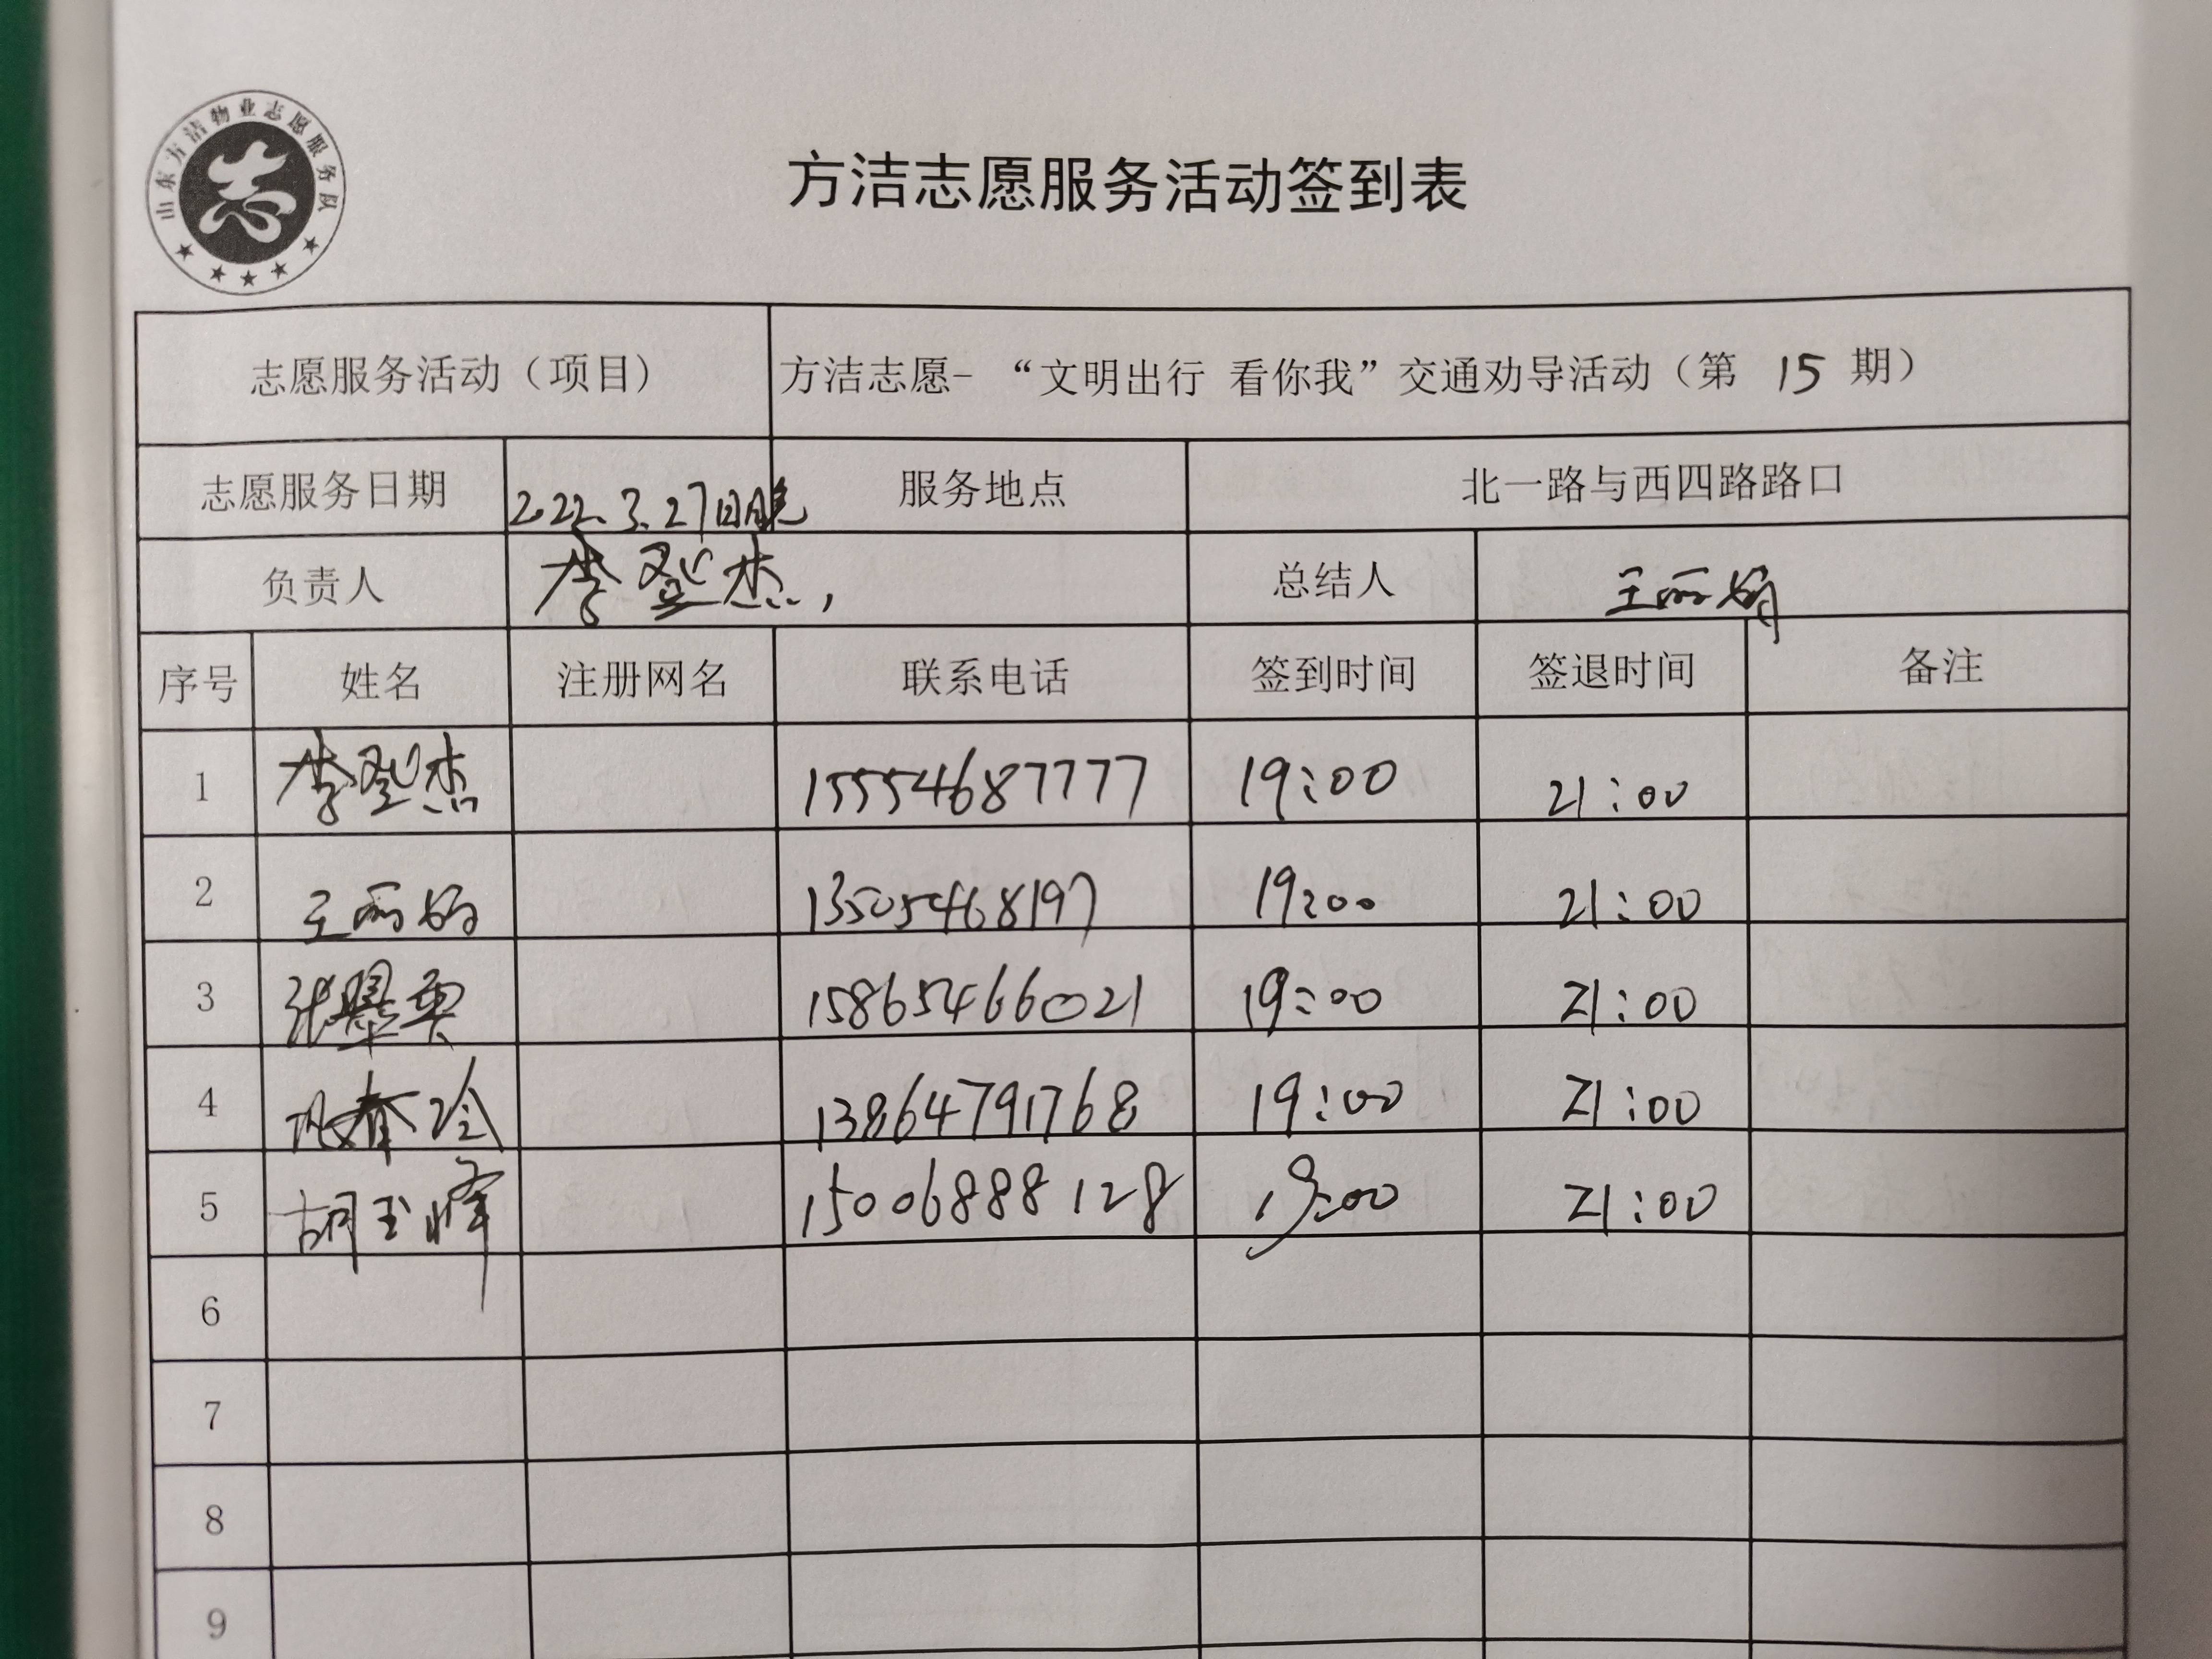 山东方洁物业志愿服务队
志
方洁志愿服务活动签到表
志愿服务活动（项目） 方洁志愿-“文明出行 看你我”交通劝导活动（第 15 期）
志愿服务日期 2022.3.27日晚 服务地点 北一路与西四路路口
负责人 李登杰 总结人 王丽娟
序号 姓名 注册网名 联系电话 签到时间 签退时间 备注
1 李登杰 15554687777 19:00 21:00
2 王丽娟 13505468197 19:00 21:00
3 15865466021 19:00 21:00
4 13864791768 19:00 21:00
5 胡玉峰 15006888128 19:00 21:00
6
7
8
9